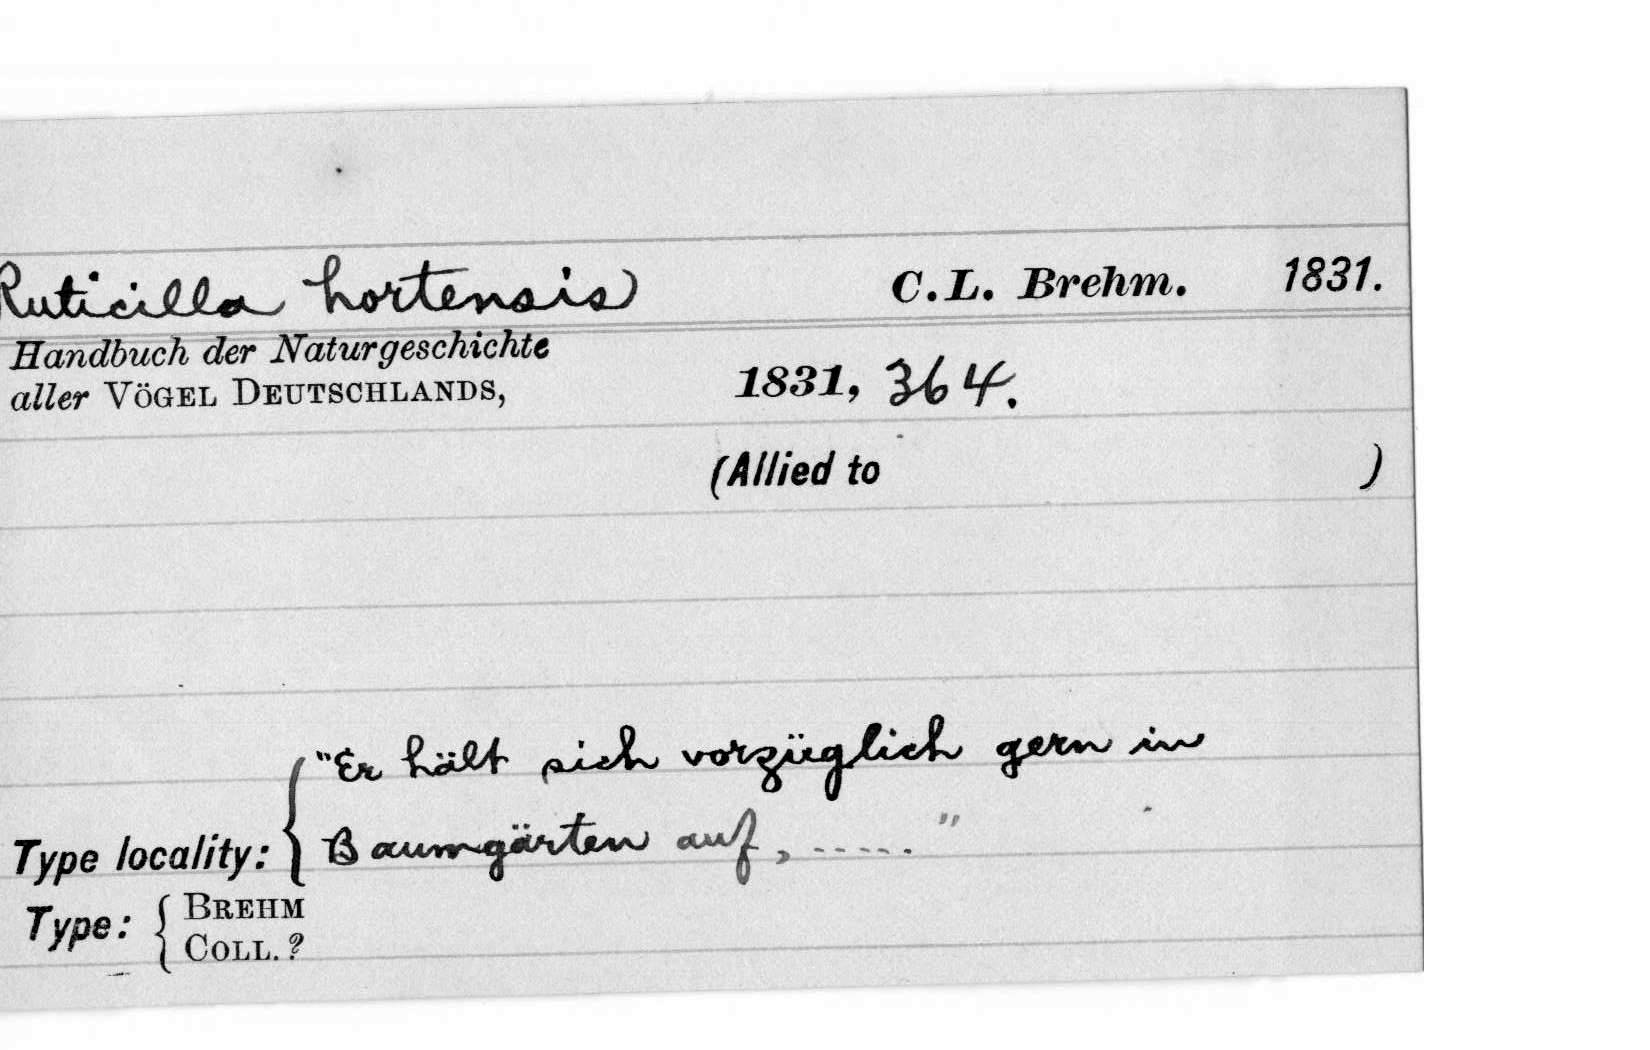 Ruticilla hortensis C.L. Brehm. 1831.
Handbuch der Naturgeschichte
aller VÖGEL DEUTSCHLANDS, 1831, 364.
(Allied to )
"Er hält sich vorzüglich gern in
Type locality: { Baumgärten auf, ....."
Type: { BREHM
COLL. ?